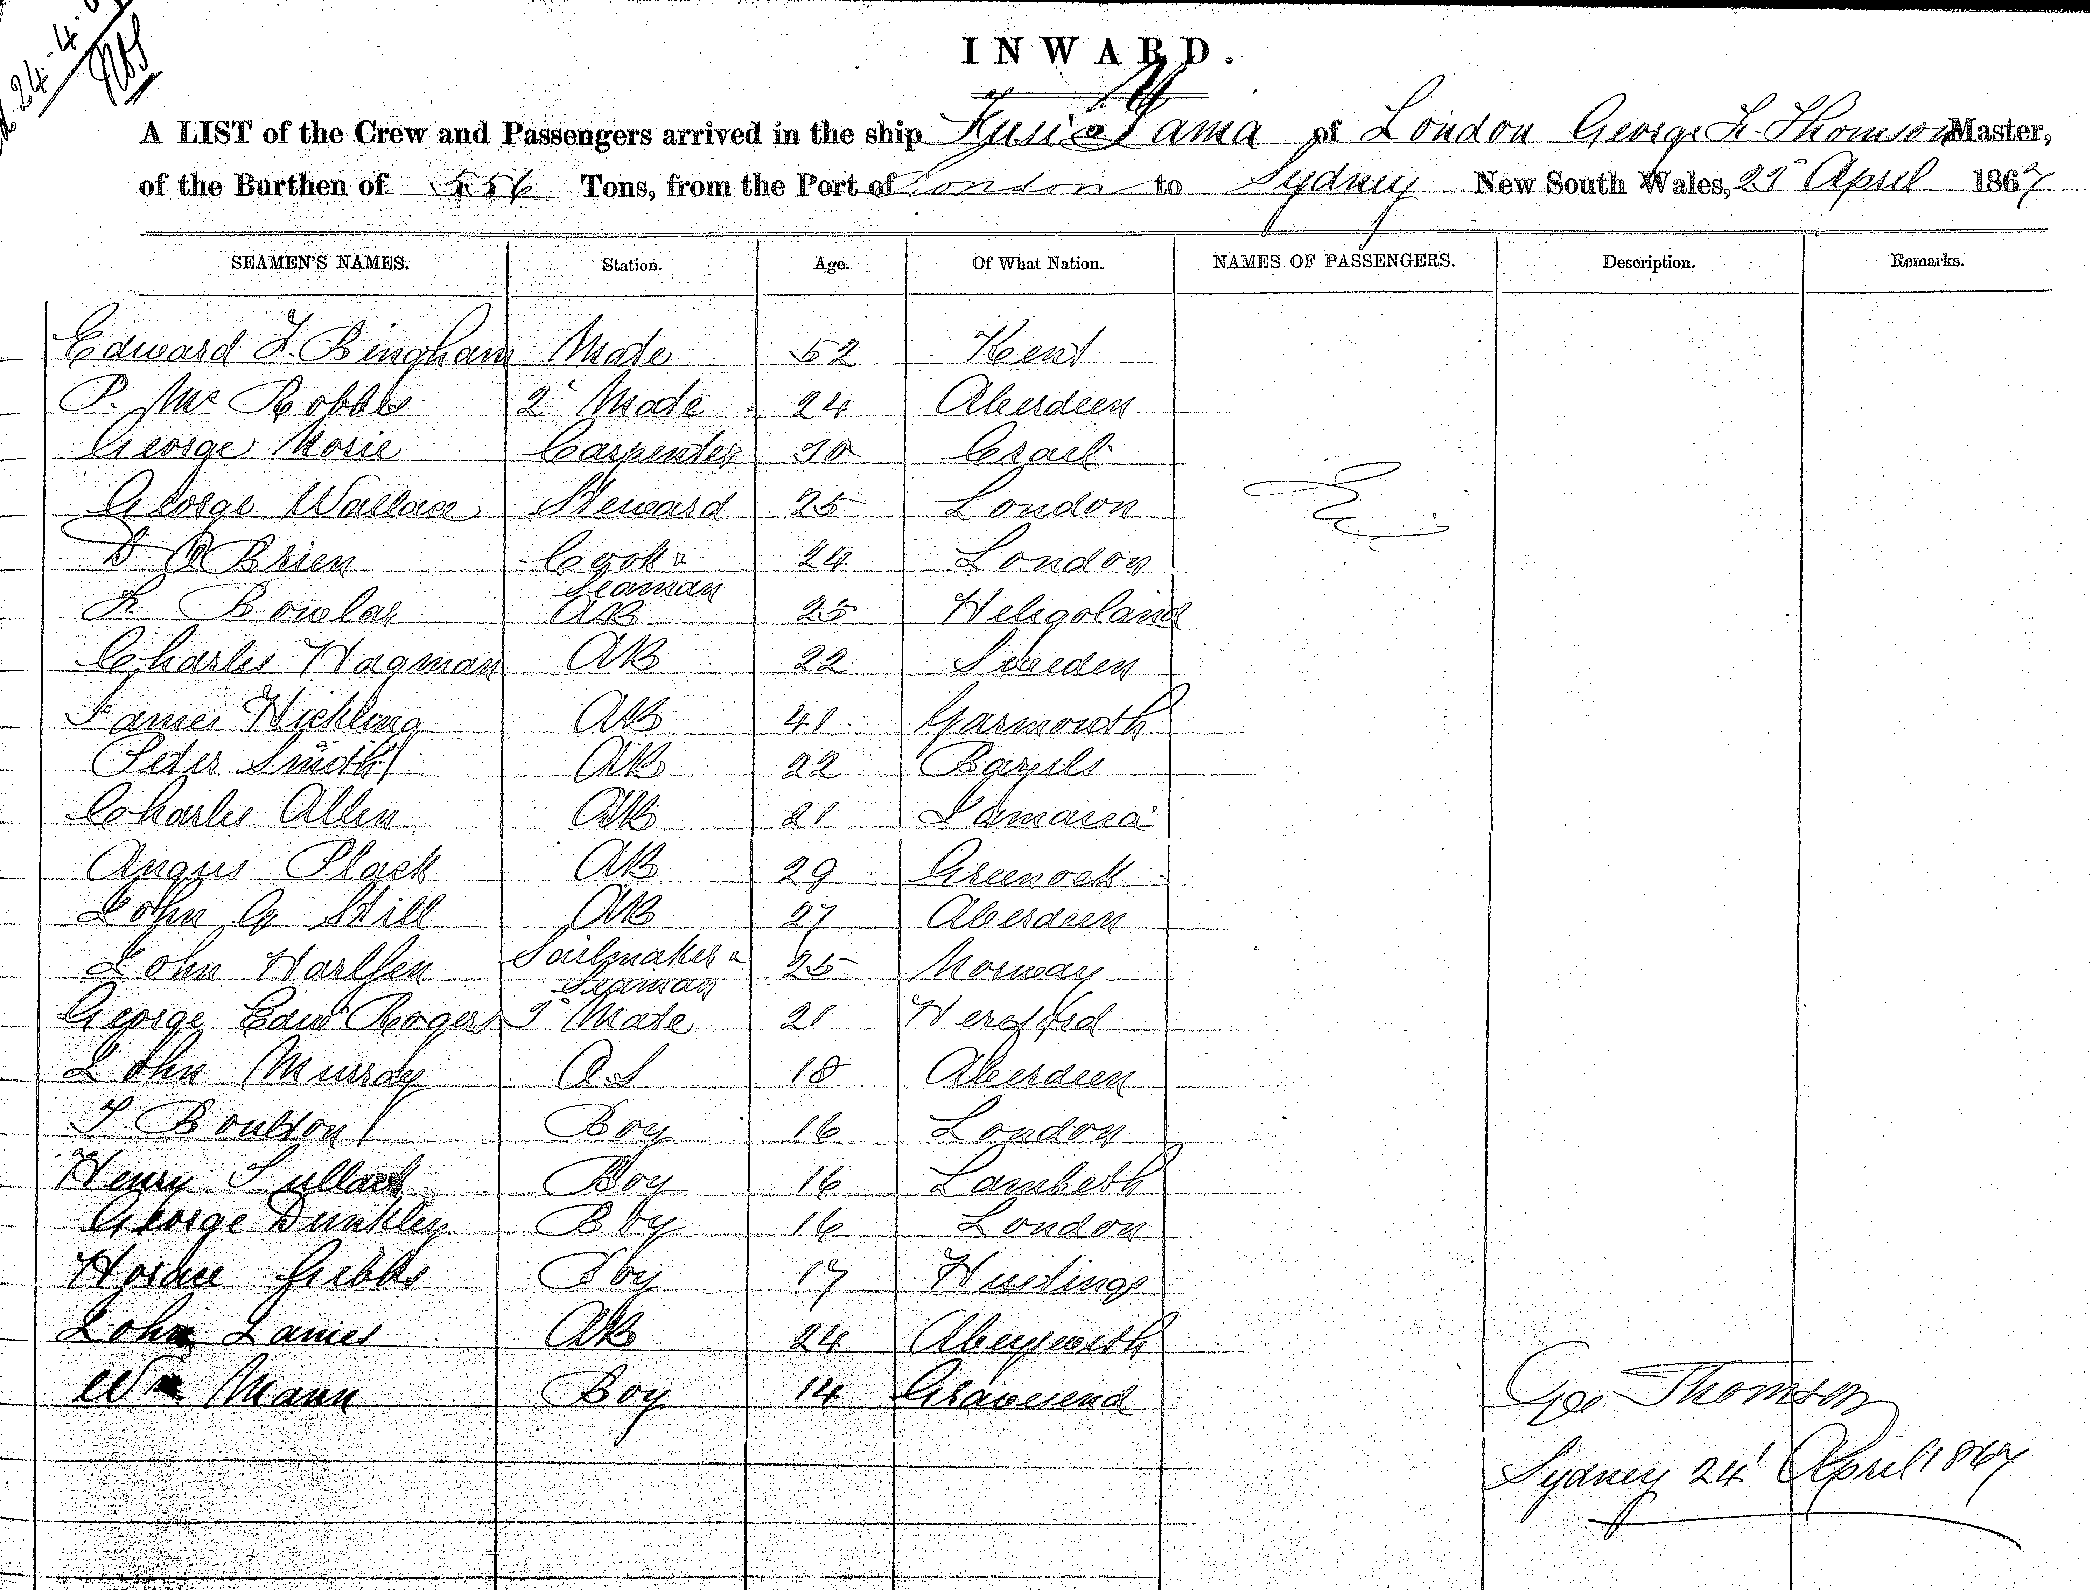 24.4.
INWARD.
A LIST of the Crew and Passengers arrived in the ship Fusi Yama of London George F. Thomson Master,
of the Burthen of 556 Tons, from the Port of London to Sydney New South Wales, April 1867
SEAMEN'S NAMES. Station. Age. Of What Nation. NAMES OF PASSENGERS. Description. Remarks.
Edward F. Bingham Mate 52 Kent
P. Mc Robbie 2d Mate 24 Aberdeen
George Morie Carpenter 30 Crail
George Wallace Steward 25 London
D O'Brien Cook & 24 London
Seaman
Bowlas AB 25 Heligoland
Charles Hagman AB 22 Sweden
James Hickling AB 41 Yarmouth
Peter Smith AB 22
Charles Allen AB 21 Jamaica
Angus Black AB 29 Greenock
John G Still AB 27 Aberdeen
John Sailmaker & 25 Norway
Seaman
George Edwd Rogers 3d Mate 21 Hereford
John Murray OS 18 Aberdeen
Boulton Boy 16 London
Henry Boy 16 Lambeth
George Dunkley Boy 16 London
Horace Gibbs Boy 17
John James AB 24
Wm Mann Boy 14 Gravesend
Geo Thomson
Sydney 24 April 1867